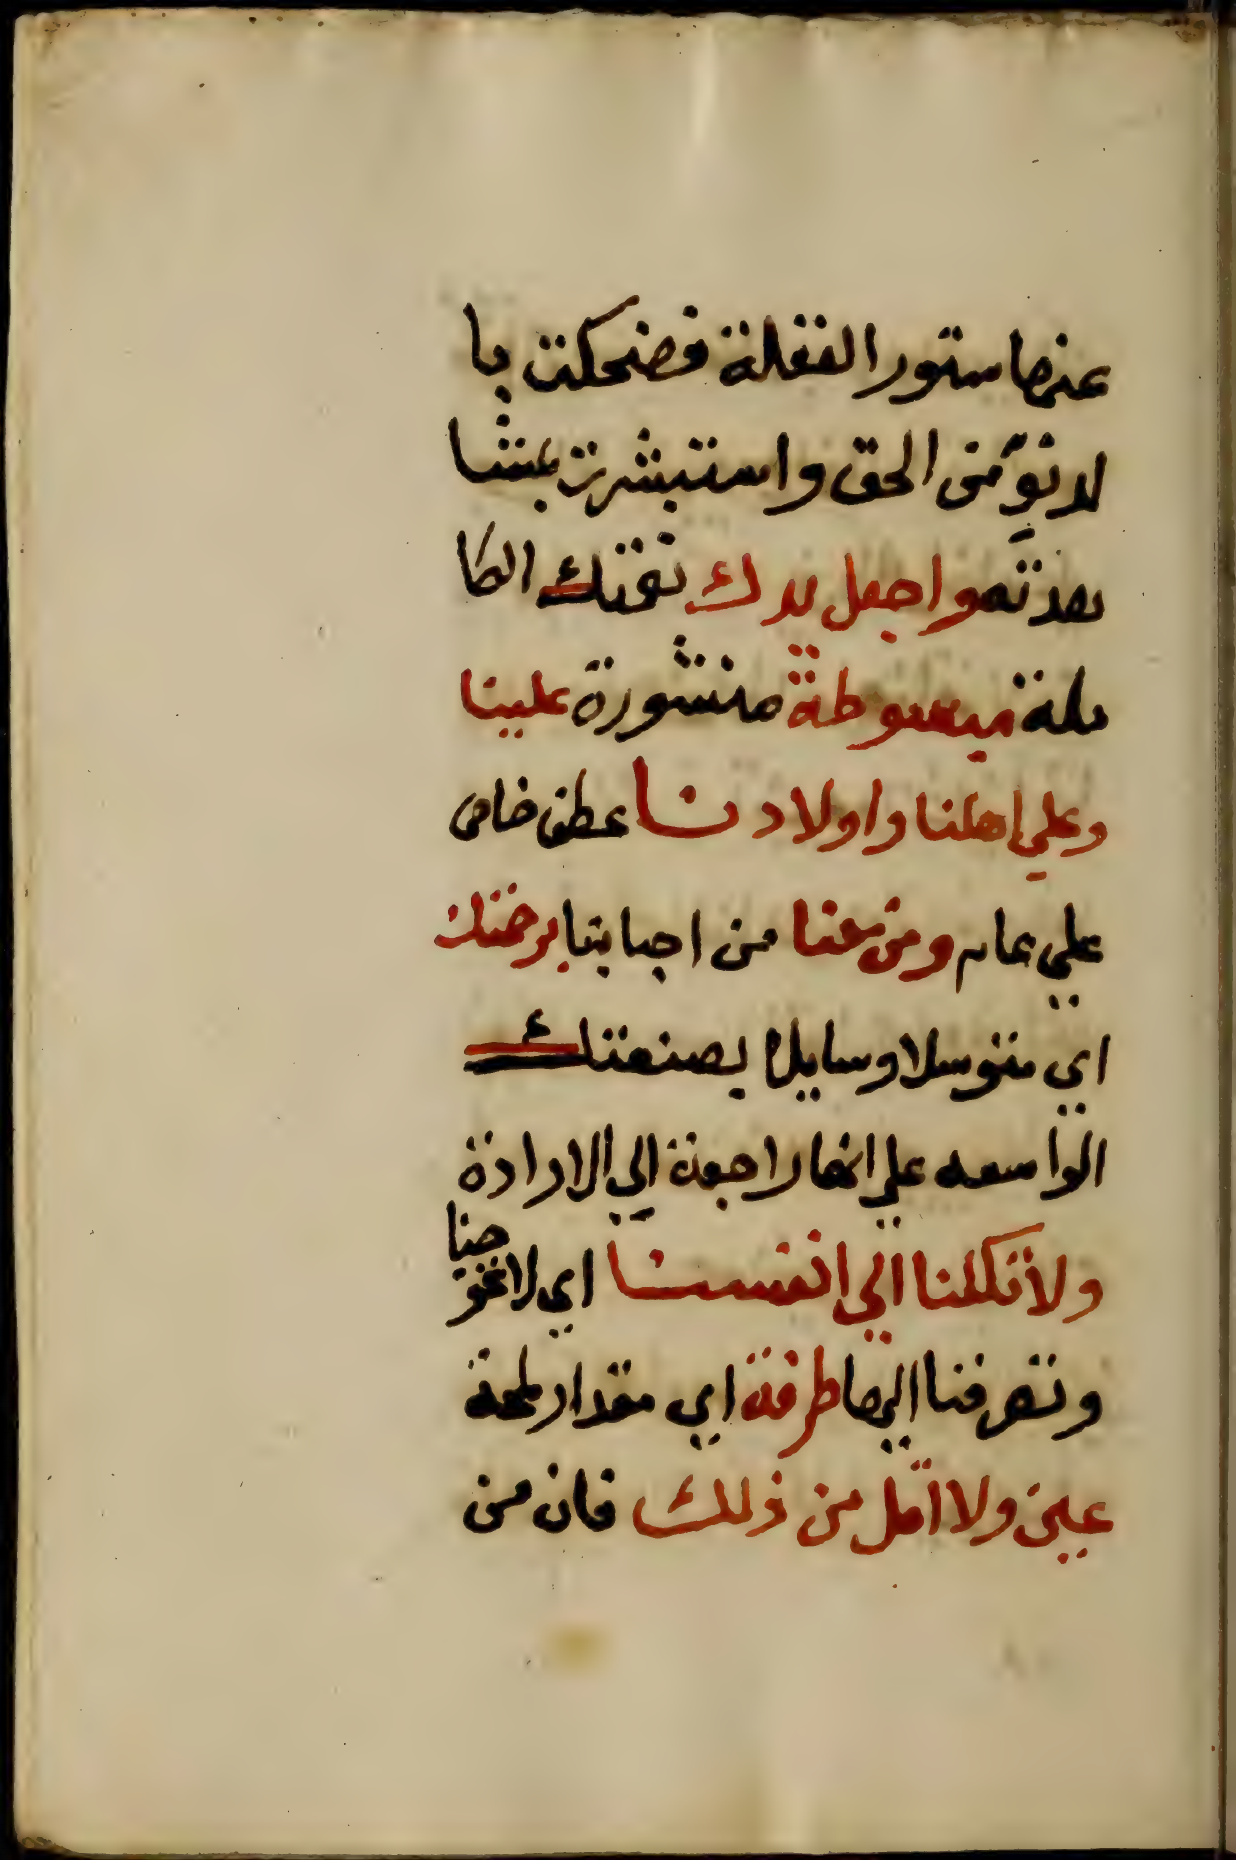 عنها ستور الغفلة فضحكت با
لدنو من الحق واستبشرت بمشا
هدته واجعل يدك نعمتك الكا
ملة مبسوطة منشورة علينا
وعلي اهلنا واولادنا عطف خاص
علي عام ومن معنا من احبابنا برحمتك
اي متوسلا وسايلا بصنعتك
الواسعه علي انها راجعة الي الارادة
ولا تكلنا الي انفسنا اي لا تحوجنا
وتصرفنا اليها طرفة اي مقدار لمحة
عين ولا اقل من ذلك فان من